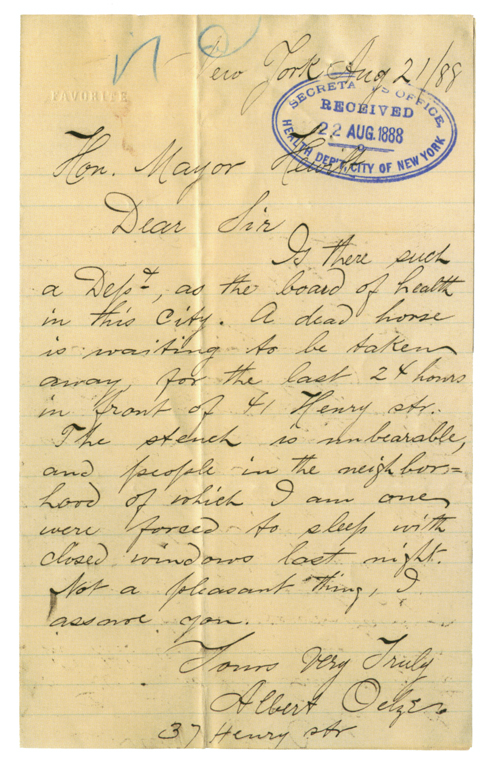 New York Aug 21/88
FAVORITE
SECRETARY'S OFFICE,
RECEIVED
22 AUG. 1888
HEALTH DEP'T. CITY OF NEW YORK
Hon. Mayor Hewitt
Dear Sir
Is there such
a Dept, as the board of health
in this City. A dead horse
is waiting to be taken
away, for the last 24 hours
in front of 41 Henry str.
The stench is unbearable,
and people in the neighbor=
hood of which I am one,
were forced to sleep with
closed windows last night.
Not a pleasant thing, I
assure you.
Yours Very Truly
Albert
37 Henry str